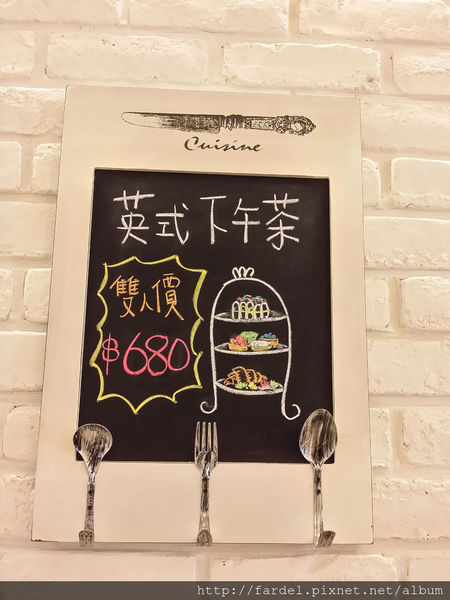 Cuisine
英式下午茶
雙人價
$680
http://fardel.pixnet.net/album